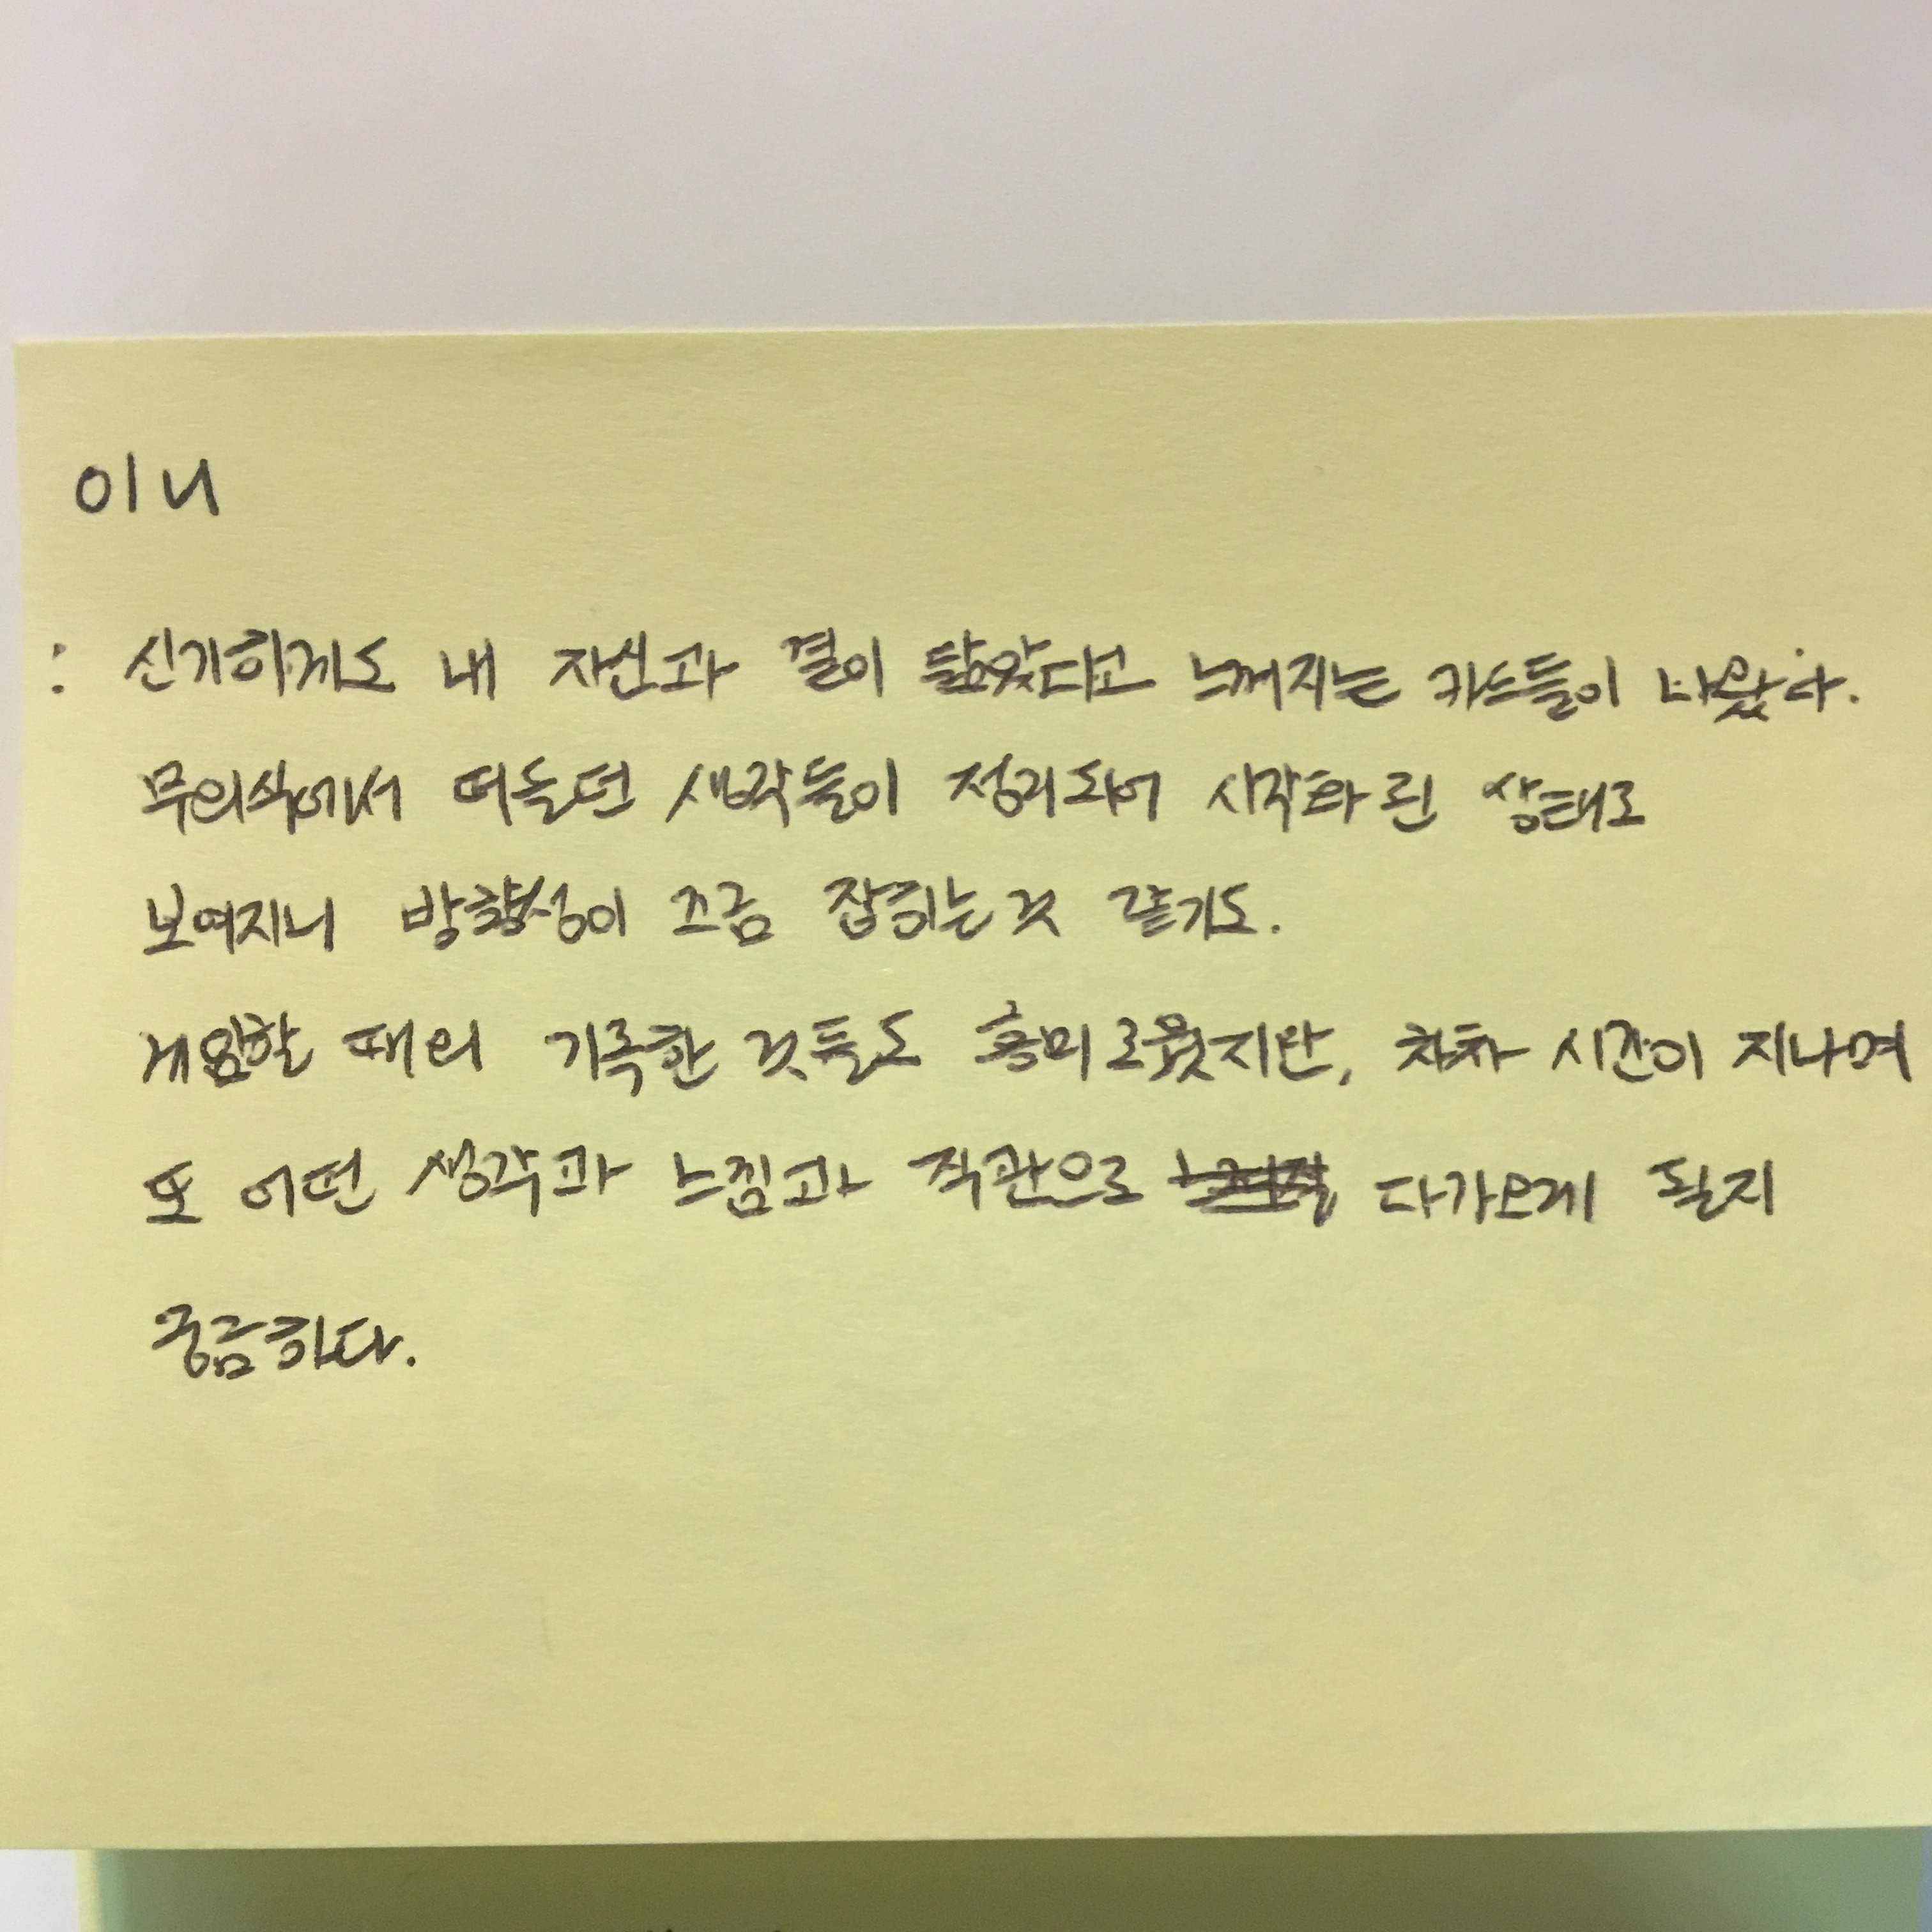 이니
: 신기하게도 내 자신과 결이 닮았다고 느껴지는 카드들이 나왔다.
무의식에서 떠돌던 생각들이 정리되어 시각화 된 상태로
보여지니 방향성이 조금 잡히는 것 같기도.
게임할 때의 기록한 것들도 흥미로웠지만, 차차 시간이 지나며
또 어떤 생각과 느낌과 직관으로 다가오게 될지
궁금하다.